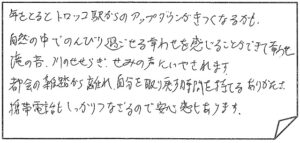 年をとるとトロッコ駅からのアップダウンがきつくなるかも、
自然の中でのんびり過ごせる幸わせを感じることができて幸せ
滝の音、川のせせらぎ、せみの声にいやされます。
都会の雑踏から離れ、自分を取り戻す時間を持てる ありがたさ
携帯電話もしっかりつながるので安心感もあります。